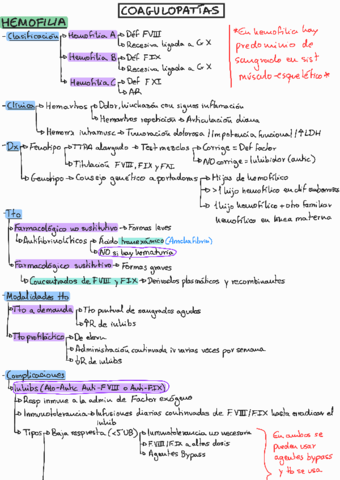 COAGULOPATÍAS
HEMOFILIA
- Clasificación → Hemofilia A → Def FVIII
→ Recesiva ligada a CX
→ Hemofilia B → Def FIX
→ Recesiva ligada a CX
→ Hemofilia C → Def FXI
→ AR
*En hemofilia hay predominio de sangrado en sist músculo-esquelético*
- Clínica → Hemartros → Dolor, hinchazón con signos inflamación
→ Hemartros repetición → Articulación diana
→ Hemorr intramusc → Tumoración dolorosa / Impotencia funcional / ↑LDH
- Dx → Fenotipo → TTPA alargado → Test mezclas → Corrige = Def factor
→ NO corrige = Inhibidor
→ Titulación FVIII, FIX y FXI
→ Genotipo → Consejo genético a portadoras → Hijas de hemofílico
→ >1 hijo hemofílico en dif embarazos
→ 1 hijo hemofílico + otro familiar hemofílico en línea materna
- Tto
→ Farmacológico no sustitutivo → Formas leves
→ Antifibrinolíticos → Ácido tranexámico (Amchafibrin)
→ NO si hay hematuria
→ Farmacológico sustitutivo → Formas graves
→ Concentrados de FVIII y FIX → Derivados plasmáticos y recombinantes
- Modalidades tto
→ Tto a demanda → Tto puntual de sangrados agudos
→ ↑R de inhibs
→ Tto profiláctico → De elecn
→ Administración continuada iv varias veces por semana
→ ↓R de inhibs
- Complicaciones
→ Inhibs (Alo-Antic Anti-FVIII o Anti-FIX)
→ Resp inmune a la admin de Factor exógeno
→ Inmunotolerancia → Infusiones diarias continuadas de FVIII/FIX hasta erradicar el inhib
→ Tipos → Baja respuesta (<5 UB) → Inmunotolerancia no necesaria
→ FVIII/FIX a altas dosis
→ Agentes Bypass
En ambos se pueden usar agentes bypass y tb se usa